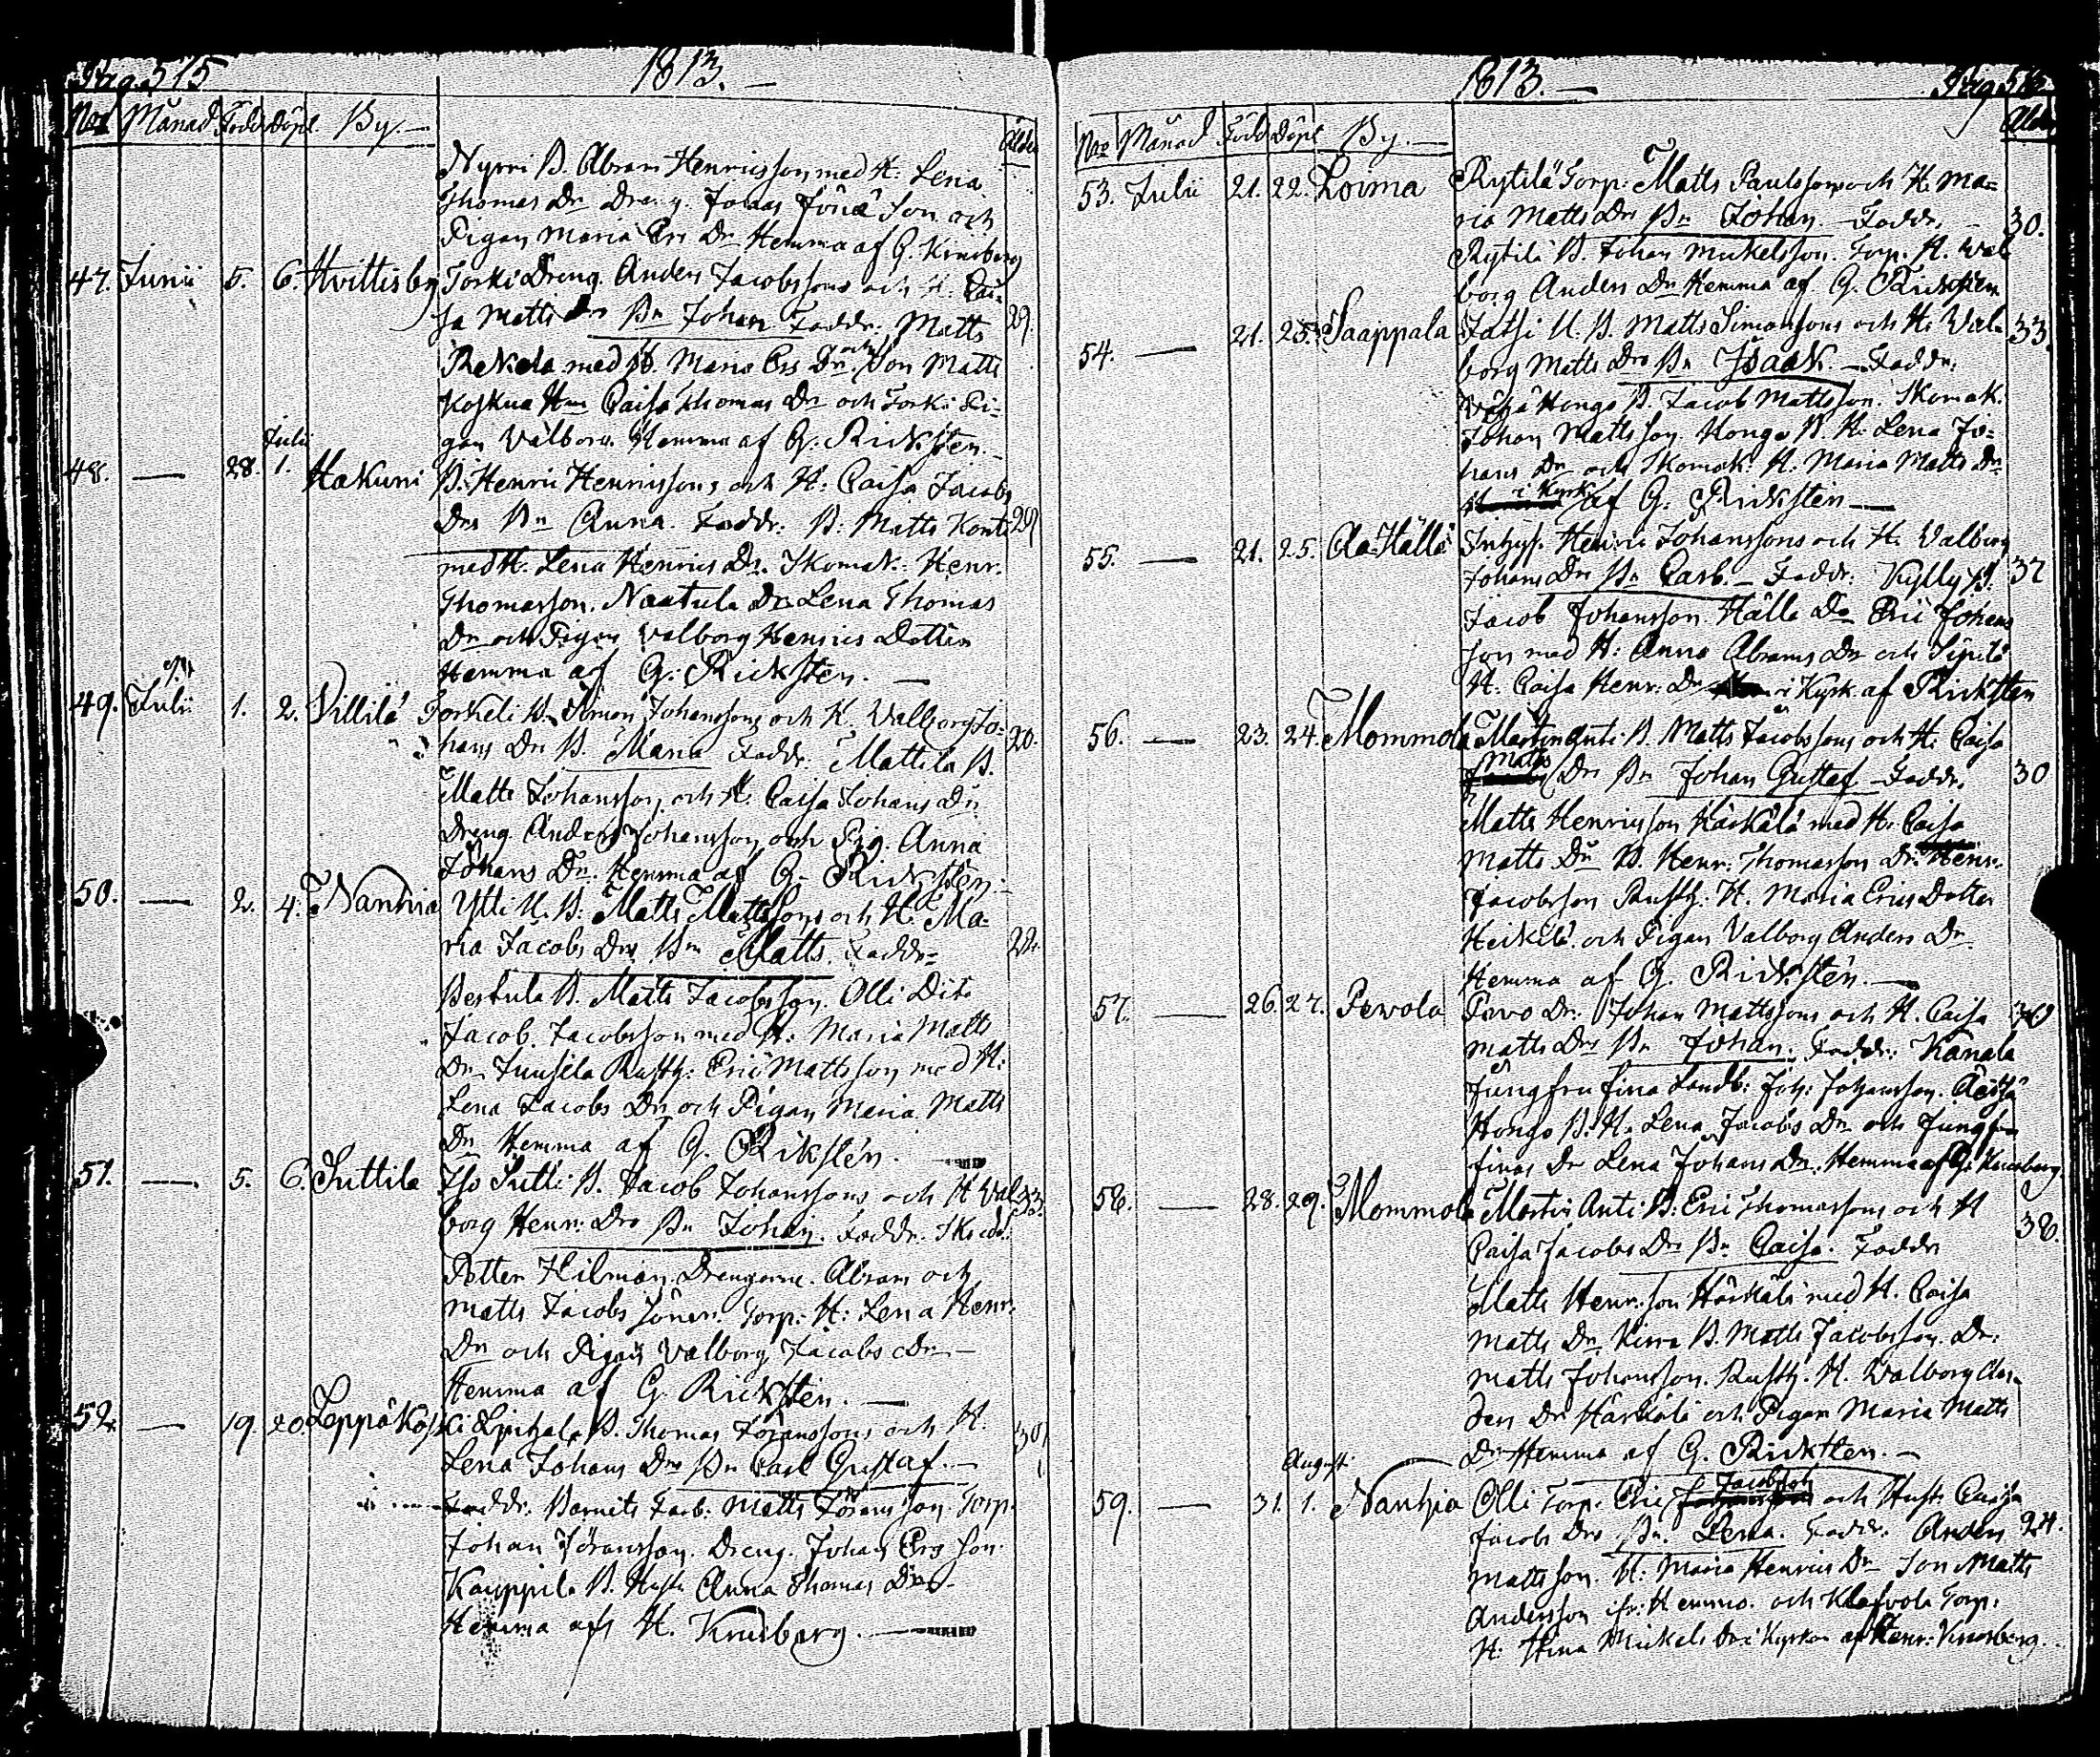 Pag. 515
1813. —
Nro Månad Född Döpt. By. — Ålder
Nyrri B. Abram Henricsson med H: Lena
Thomas Dr Dreng. Johan son och
Pigan Maria Ers Dr Hemma af G. Krusberg
47. Junii 5. 6. Hvittisby Torki Dreng Anders Jacobssons och H. Cai-
sa Matts drs Bn Johan Faddr: Matts 29.
Rekola med H. Maria Ers Dr och Son Matts
Koskua Hus Caisa Thomas Dr och Torki Pi-
gan Valborg. Hemma af G: Ricksten. —
48. — 28. Julii 1. Hakuni B. Henric Henricssons och H: Caisa Jacobs
Drs Bn Anna. Faddr: B: Matts Konti 29
med H. Lena Henrics Dr. Skomak: Henr.
Thomasson. Naatula Dr Lena Thomas
Dr och Pigan Valborg Henrics Dotter
Hemma af G: Ricksten. —
49. Julii 1. 2. Villilä Torkeli B. Simon Johanssons och H. Valborg Jo-
hans Dr B. Maria Faddr: Mattila B. 20.
Matts Johansson och H. Caisa Johans Dr
Dreng. Anders Johansson och Pig. Anna
Johans Dr. Hemma af G. Ricksten. —
50. — 2. 4. Nanhia Ylli U. B: Matts Mattssons och H. Ma-
ria Jacobs Drs Bn Matts. Faddr= 22.
Pertula B. Matts Jacobsson. Olli Dito
Jacob. Jacobsson med H: Maria Matts
Dr Junsila Rusth: Eric Mattsson med H:
Lena Jacobs Dr och Pigan Maria Matts
Dr Hemma af G. Rikstén.
51. — 5. 6. Suttila Iso Sutti B. Jacob Johanssons och H Val- 33.
borg Henr: Drs Bn Johan. Faddr. Skrädd.
Petter Hilman. Drengarne. Abram och
Matts Jacobs Söner. Torp: H: Lena Henr:
Dr och Pigan Valborg Jacobs Dr. —
Hemma af G. Ricksten. —
52. — 19. 20. Leppäkos ki B. Thomas Jöranssons och H. 30
Lena Johans Drs Bn Carl Gustaf. —
Faddr: Barnets Farb: Matts Jöransson Torp.
Johan Jöransson. Dreng. Johan Ers Son.
Kauppila B. Hustr Anna Thomas Dr. —
Hemma af H. Krusberg. —
1813. — Pag 516
Nro Månad Född Döpt By. — Ålder
53. Julii 21. 22. Loima Rytilä Torp: Matts Paulssons och H. Ma=
ria Matts Drs Bn Johan. — Faddr. — 30.
Rytilä B. Johan Mickelsson. Torp. H. Wal
borg Anders Dr Hemma af G. Ricksten
54. — 21. 25. Saappala Jatsi U. B. Matts Simonssons och H. Wal- 33.
borg Matts Drs Bn Isaak. — Faddr:
Hongo B. Jacob Mattsson. Skomak.
Johan Mattsson. Hongo B. H: Lena Jo=
hans Dr och Skomak: H. Maria Matts Dr
i Kyrk. af G. Ricksten —
55. — 21. 25. Ala-Hällä Inhys. Henric Johanssons och H. Valborg
Johans Drs Bn Carl. — Faddr: Kylly B. 37
Jacob Johansson. Hälle Dr Eric Johans
son med H: Anna Abrams Dr och Sipilä
H. Caisa Henr: Dr i Kyrk. af Ricksten
56. — 23. 24. Mommola Martin Anti B. Matts Jacobssons och H. Caisa
Matts Drs Bn Johan Gustaf — Faddr. 30
Matts Henricsson Härkälä med H. Caisa
Matts Dr B. Henr: Thomasson Dr. Henr.
Jacobsson Rusth: H. Maria Erics Dotter
Heikilä. och Pigan Valborg Anders Dr
Hemma af G. Ricksten. —
57. — 26. 27. Pewola Pewo Dr: Johan Mattssons och H. Caisa
Matts Drs Bn Johan. Faddr: Kanala
Jungfru Fina Landb: Joh: Johansson.
Hongo B. H. Lena Jacobs Dr och Jungfru
Finas Dr Lena Johans Dr. Hemma af G: Krusberg.
58. — 28. 29. Mommola Martin Anti B: Eric Thomassons och H 38.
Caisa Jacobs Drs Bn Caisa. Faddr
Matts Henr: son Härkälä med H. Caisa
Matts Dr. Kirra B. Matts Jacobsson. Dr.
Matts Johansson. Rusth: H. Valborg An-
ders Dr Härkälä och Pigan Maria Matts
Dr Hemma af G. Ricksten. —
59. — 31. Augusti 1. Nanhia Olli Torp: Eric Jacobson och Hustr Caisa
Jacobs Drs Bn Lena. Faddr. Anders 24.
Mattsson. H: Maria Henrics Dr Son Matts
Andersson och Torp.
H: Stina Mickels Dr i Kyrkan af Henr: Krusberg.